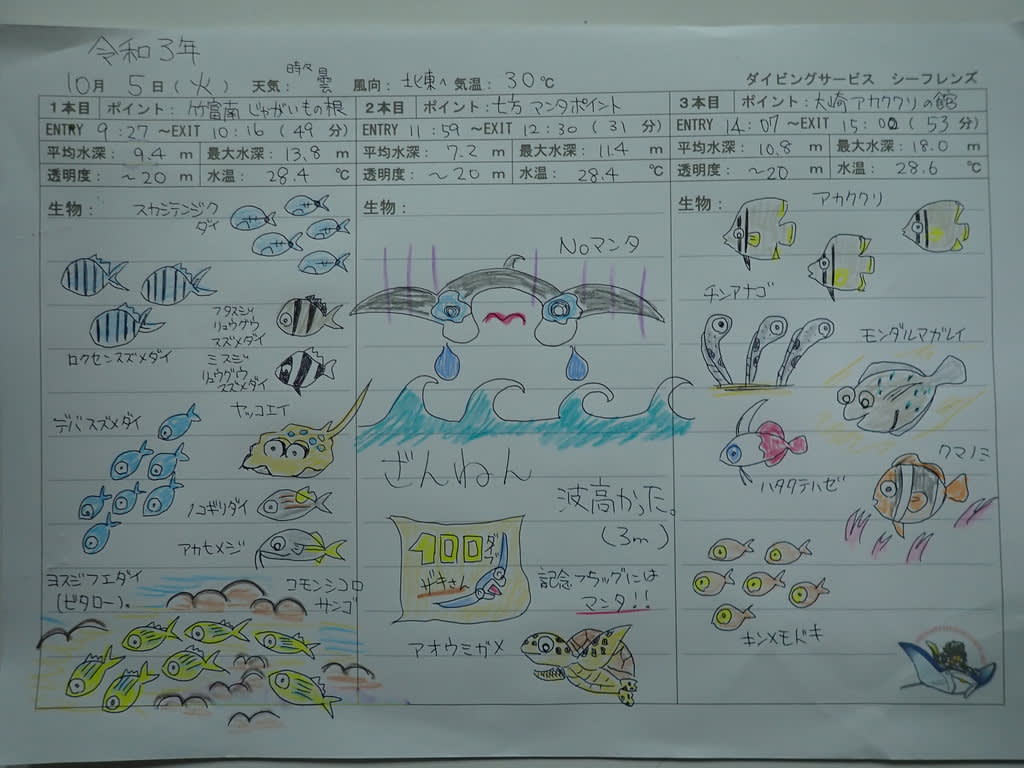 令和3年
10月 5日(火) 天気: 時々曇 風向: 北東 気温: 30℃ ダイビングサービス シーフレンズ
1本目 ポイント: 竹富南 じゃがいもの根
ENTRY 9:27 ~EXIT 10:16 (49分)
平均水深: 9.4 m 最大水深: 13.8 m
透明度: ~20 m 水温: 28.4 ℃
生物:
スカシテンジク
ダイ
フタスジ
リュウグウ
スズメダイ
ロクセンスズメダイ
ミスジ
リュウグウ
スズメダイ
デバスズメダイ
ヤッコエイ
ノコギリダイ
アカヒメジ
ヨスジフエダイ
(ビタロー)。
コモンシコロ
サンゴ
2本目 ポイント: 七方 マンタポイント
ENTRY 11:59 ~EXIT 12:30 (31分)
平均水深: 7.2 m 最大水深: 11.4 m
透明度: ~20 m 水温: 28.4 ℃
生物:
Noマンタ
ざんねん
波高かった。
(3m)
100ダイブ
ザキさん
記念フラッグには
マンタ!!
アオウミガメ
3本目 ポイント: 大崎 アカククリの館
ENTRY 14:07 ~EXIT 15:00 (53分)
平均水深: 10.8 m 最大水深: 18.0 m
透明度: ~20 m 水温: 28.6 ℃
生物:
アカククリ
チンアナゴ
モンダルマガレイ
ハタタテハゼ
クマノミ
キンメモドキ